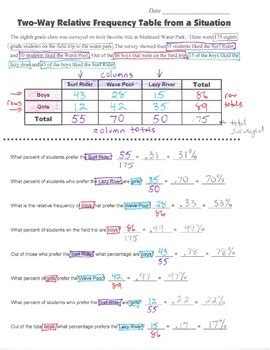 Date
Two-Way Relative Frequency Table from a Situation
The eighth grade class was surveyed on their favorite ride at Markland Water Park. There were 175 eighth
grade students on the field trip to the water park. The survey showed that 55 students liked the Surf Rider,
and 70 students liked the Wave Pool. Out of the 86 boys that were on the trip, 15 of the boys liked the
lazy river and 43 of the boys liked the Surf Rider.
columns
Surf Rider Wave Pool Lazy River Total
rows Boys 43 28 15 86 row
Girls 12 42 35 89 totals
Total 55 70 50 175
column totals total surveyed
What percent of students prefer the Surf Rider? 55/175 = .31 = 31%
What percent of students who prefer the Lazy River are girls? 35/50 = .70 = 70%
What is the relative frequency of boys that prefer the Wave Pool? 28/86 = .33 = 33%
What percent of students on the field trip are boys? 86/175 = .49 = 49%
Out of those who prefer the Surf Rider what percentage are boys? 43/55 = .78 = 78%
What percent of girls prefer the Wave Pool? 42/89 = .47 = 47%
What percent of students who prefer the Surf Rider are girls? 12/55 = .22 = 22%
Out of the total boys, what percentage prefers the Lazy River? 15/86 = .17 = 17%